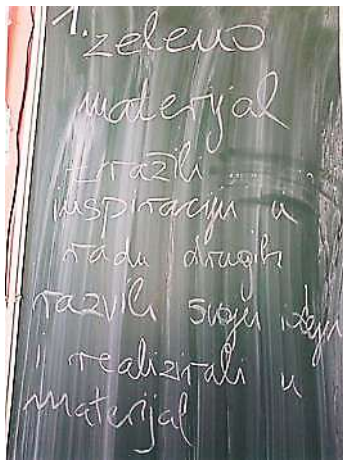 1. zeleno
materijal
tražili
inspiraciju u
radu drugih
razvili svoju ideju
i realizirali u
materijal